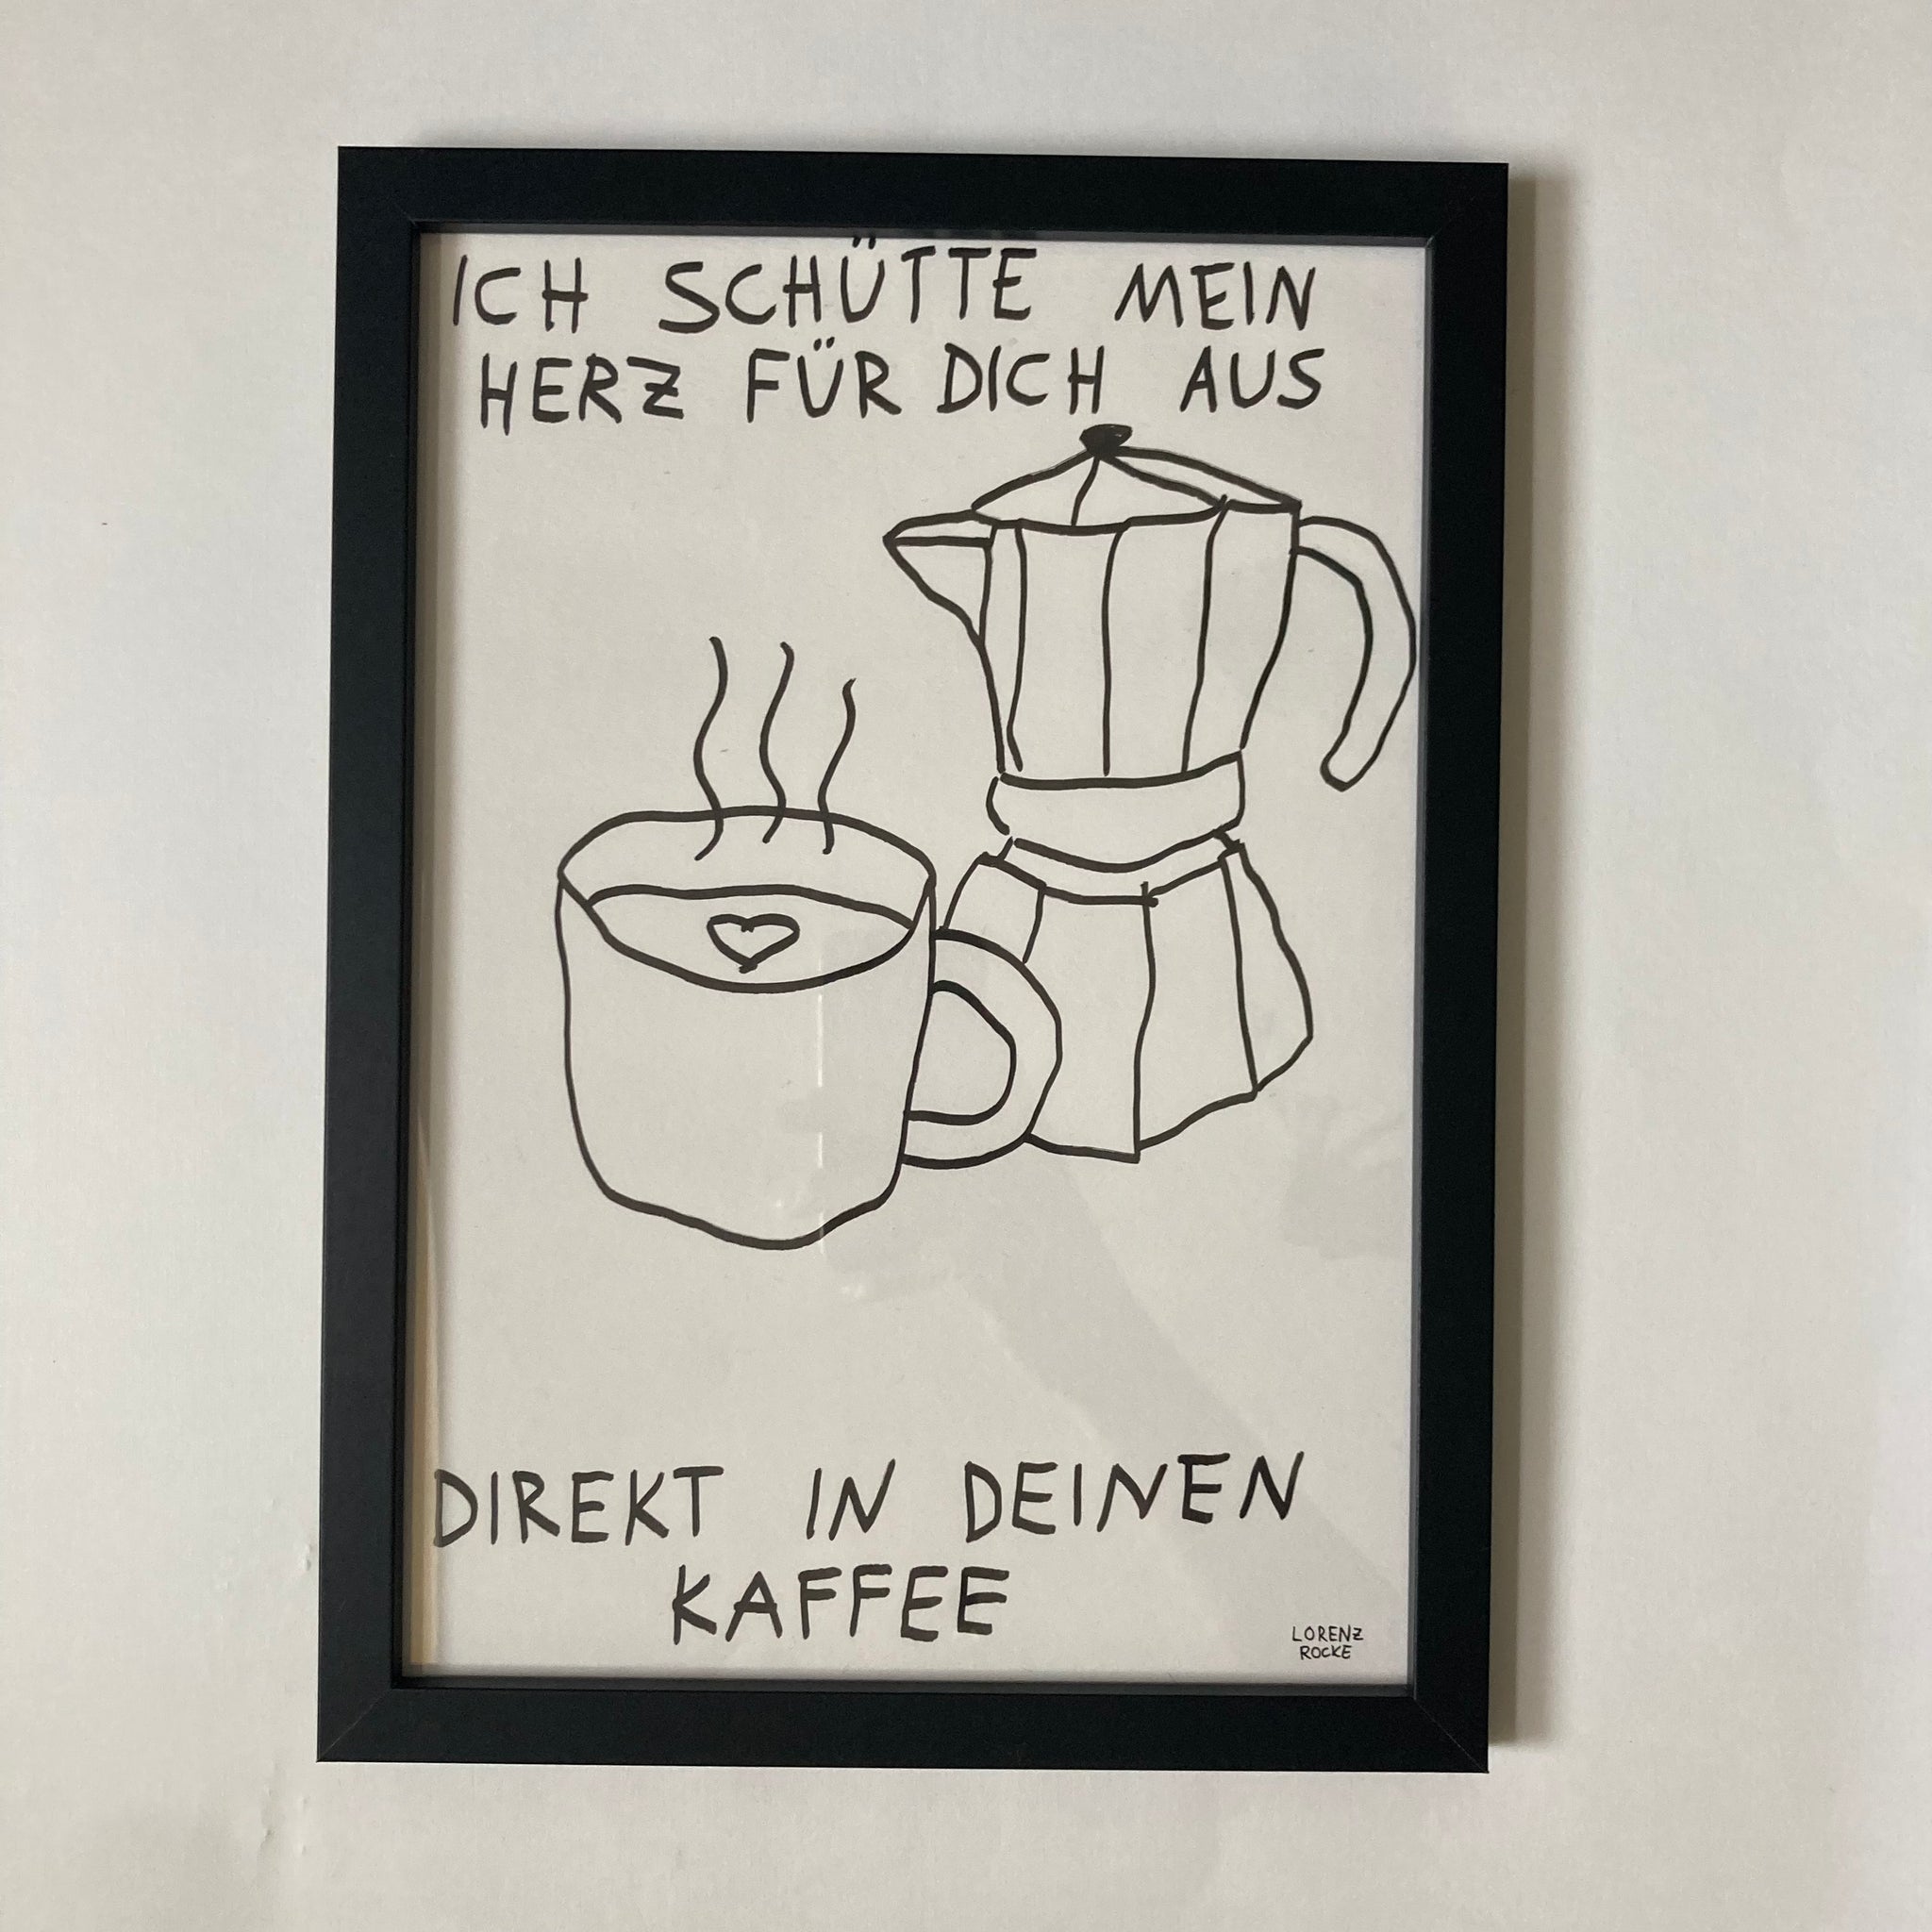 ICH SCHÜTTE MEIN
HERZ FÜR DICH AUS
DIREKT IN DEINEN
KAFFEE
LORENZ
ROCKE